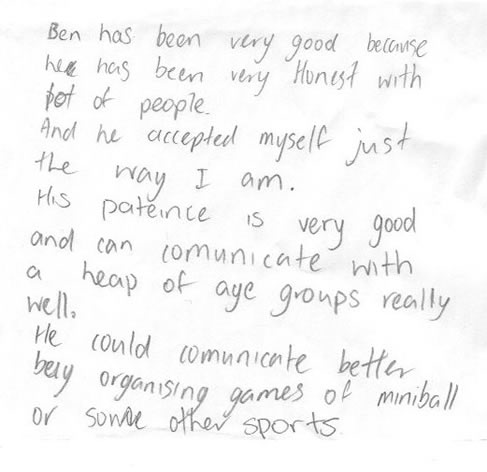 Ben has been very good because
he has been very Honest with
lot of people.
And he accepted myself just
the way I am.
His pateince is very good
and can comunicate with
a heap of age groups really
well.
He could comunicate better
by organising games of miniball
or some other sports.